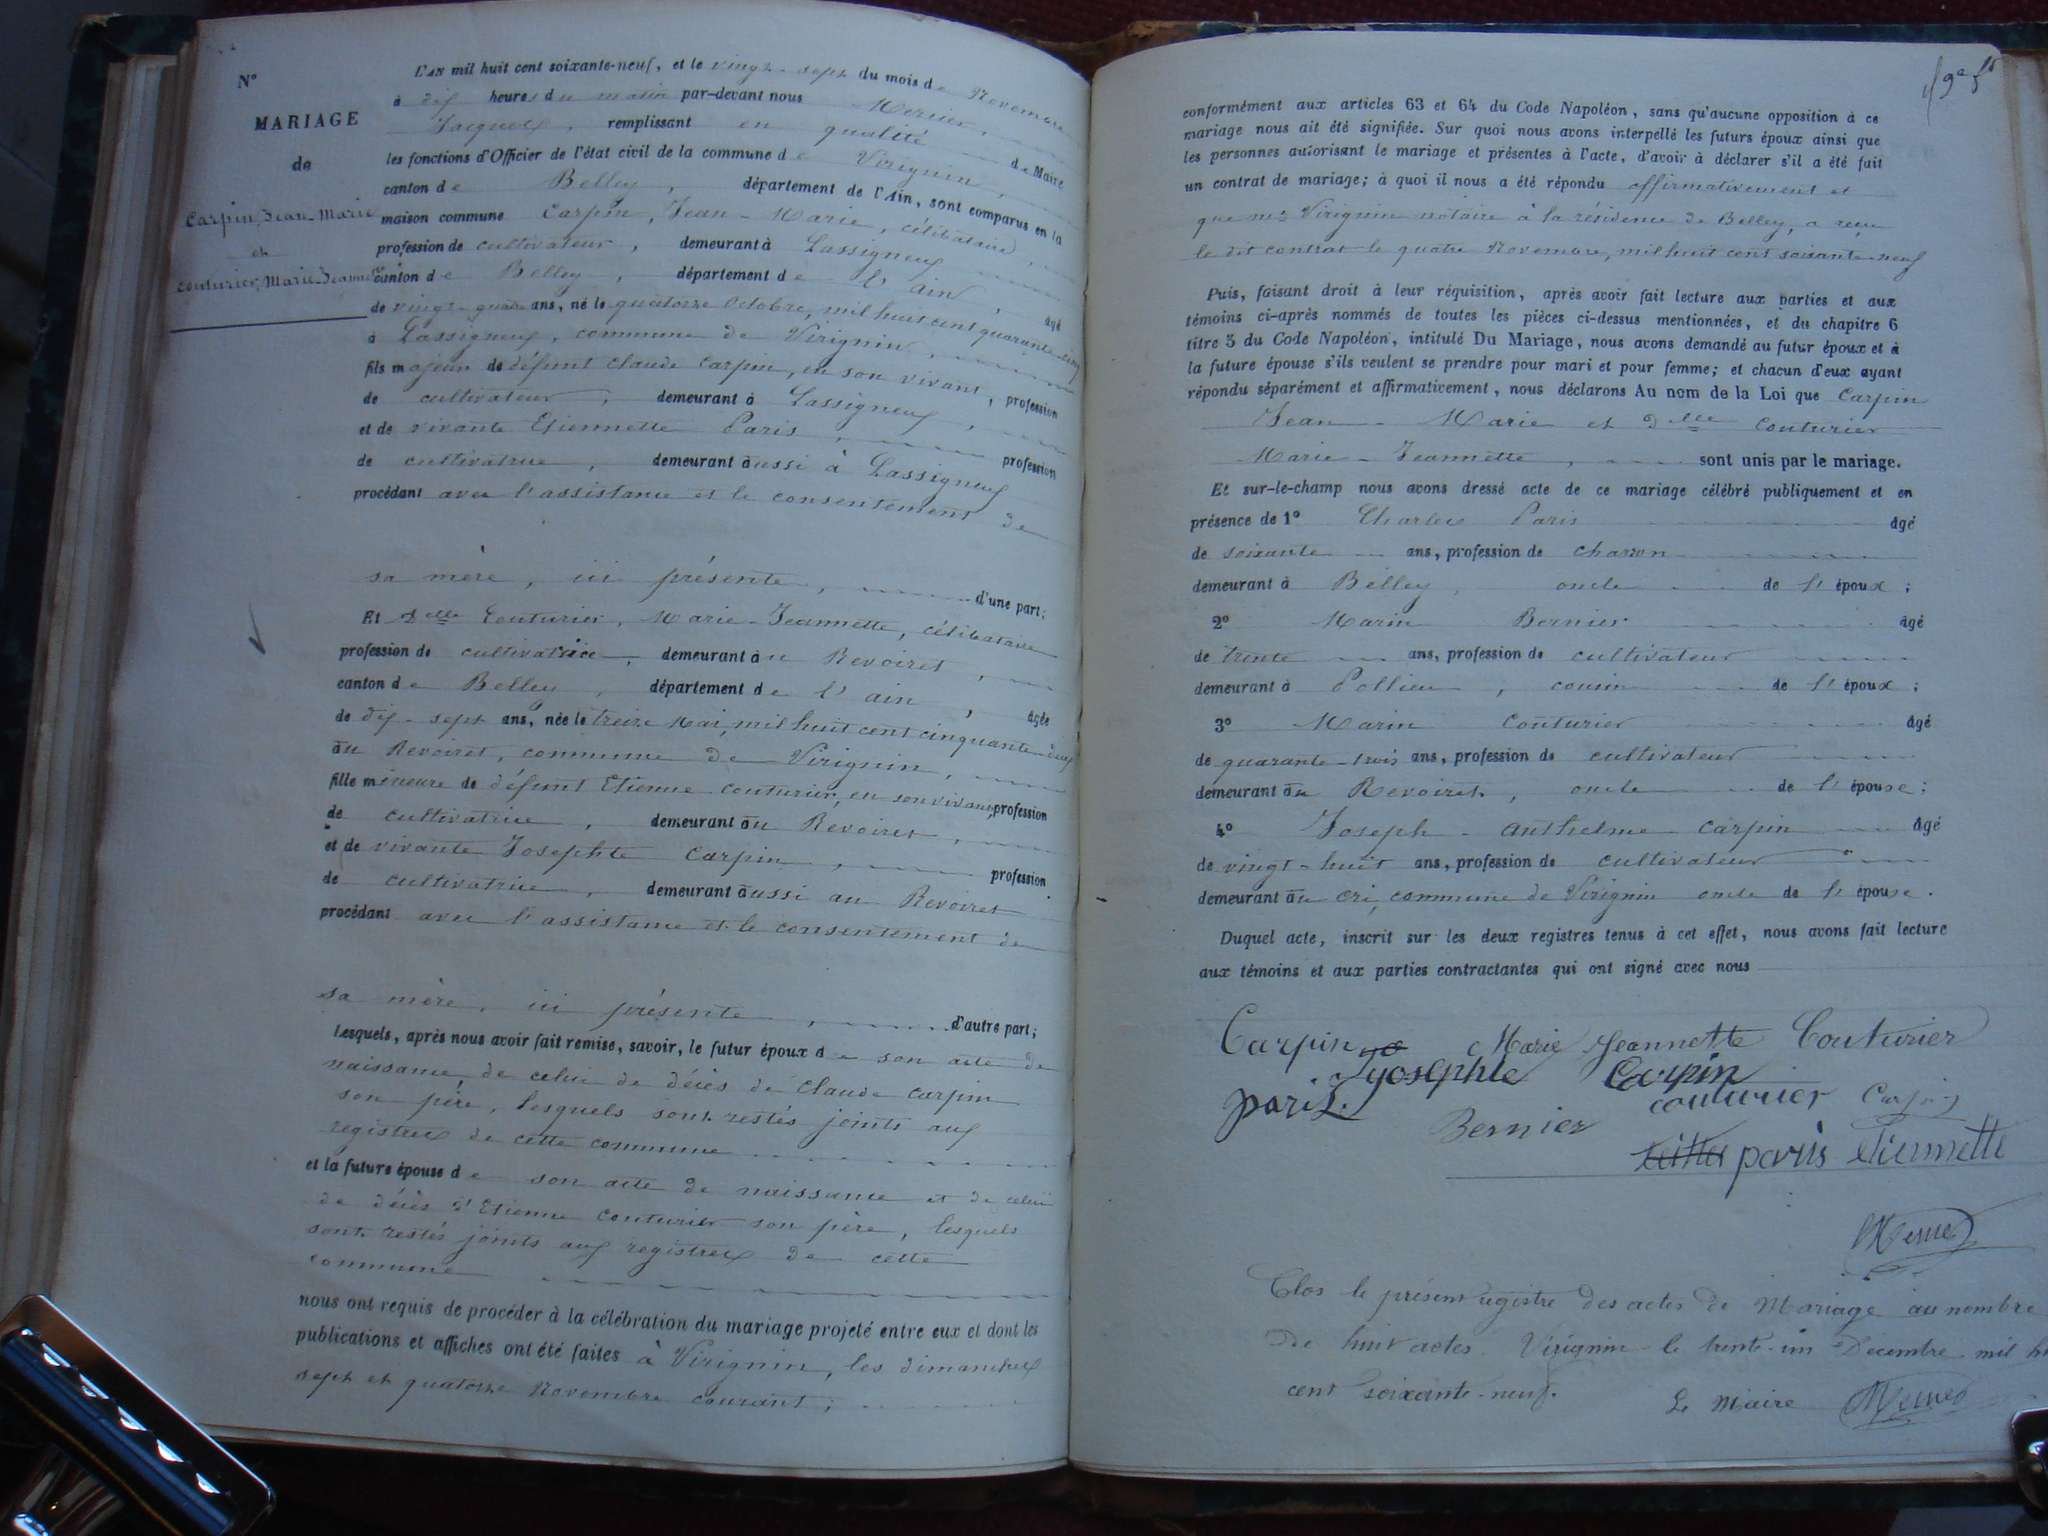 N°
MARIAGE
de
Carpin, Jean-Marie
et
Couturier, Marie-Jeannette
L'AN mil huit cent soixante-neuf, et le vingt-sept du mois de Novembre
à dix heures du matin par-devant nous Mernier,
Jacques, remplissant en qualité de Maire
les fonctions d'Officier de l'état civil de la commune de Virignin,
canton de Belley, département de l'Ain, sont comparus en la
maison commune Carpin, Jean-Marie, célibataire,
profession de cultivateur, demeurant à Lassigneux
canton de Belley, département de l'ain, âgé
de vingt-quatre ans, né le quatorze Octobre, mil huit cent quarante-cinq
à Lassigneux, commune de Virignin,
fils majeur de défunt Claude Carpin, en son vivant, profession
de cultivateur, demeurant à Lassigneux,
et de vivante Etiennette Paris, profession
de cultivatrice, demeurant aussi à Lassigneux
procédant avec l'assistance et le consentement de
sa mère, ici présente, d'une part;
Et Delle Couturier, Marie-Jeannette, célibataire
profession de cultivatrice, demeurant au Revoiret,
canton de Belley, département de l'ain, âgée
de dix-sept ans, née le treize Mai, mil huit cent cinquante-deux
au Revoiret, commune de Virignin,
fille mineure de défunt Etienne Couturier, en son vivant, profession
de cultivatrice, demeurant au Revoiret,
et de vivante Josephte Carpin, profession
de cultivatrice, demeurant aussi au Revoiret
procédant avec l'assistance et le consentement de
sa mère, ici présente, d'autre part;
Lesquels, après nous avoir fait remise, savoir, le futur époux de son acte de
naissance, de celui de décès de Claude Carpin
son père, lesquels sont restés joints aux
registres de cette commune
et la future épouse de son acte de naissance et de celui
de décès d'Etienne Couturier son père, lesquels
sont restés joints aux registres de cette
commune
nous ont requis de procéder à la célébration du mariage projeté entre eux et dont les
publications et affiches ont été faites à Virignin, les dimanches
sept et quatorze Novembre courant;
conformément aux articles 63 et 64 du Code Napoléon, sans qu'aucune opposition à ce
mariage nous ait été signifiée. Sur quoi nous avons interpellé les futurs époux ainsi que
les personnes autorisant le mariage et présentes à l'acte, d'avoir à déclarer s'il a été fait
un contrat de mariage; à quoi il nous a été répondu affirmativement et
que Me Virignin notaire à la résidence de Belley, a reçu
le dit contrat le quatre Novembre, mil huit cent soixante-neuf
Puis, faisant droit à leur réquisition, après avoir fait lecture aux parties et aux
témoins ci-après nommés de toutes les pièces ci-dessus mentionnées, et du chapitre 6
titre 5 du Code Napoléon, intitulé Du Mariage, nous avons demandé au futur époux et à
la future épouse s'ils veulent se prendre pour mari et pour femme; et chacun d'eux ayant
répondu séparément et affirmativement, nous déclarons Au nom de la Loi que Carpin
Jean-Marie et Delle Couturier
Marie-Jeannette, sont unis par le mariage.
Et sur-le-champ nous avons dressé acte de ce mariage célébré publiquement et en
présence de 1° Charles Paris âgé
de soixante ans, profession de charron
demeurant à Belley, oncle de l'époux;
2° Marin Bernier âgé
de trente ans, profession de cultivateur
demeurant à Pollieu, cousin de l'époux;
3° Marin Couturier âgé
de quarante-trois ans, profession de cultivateur
demeurant au Revoiret, oncle de l'épouse;
4° Joseph-Anthelme Carpin âgé
de vingt-huit ans, profession de cultivateur
demeurant au Cri, commune de Virignin oncle de l'épouse.
Duquel acte, inscrit sur les deux registres tenus à cet effet, nous avons fait lecture
aux témoins et aux parties contractantes qui ont signé avec nous
Carpin Marie Jeannette Couturier
Jyosephte Carpin
paris. couturier Carpin
Bernier
parris etiennette
Clos le présent registre des actes de Mariage au nombre
de huit actes. Virignin le trente-un Decembre mil h
cent soixante-neuf.
Le Maire